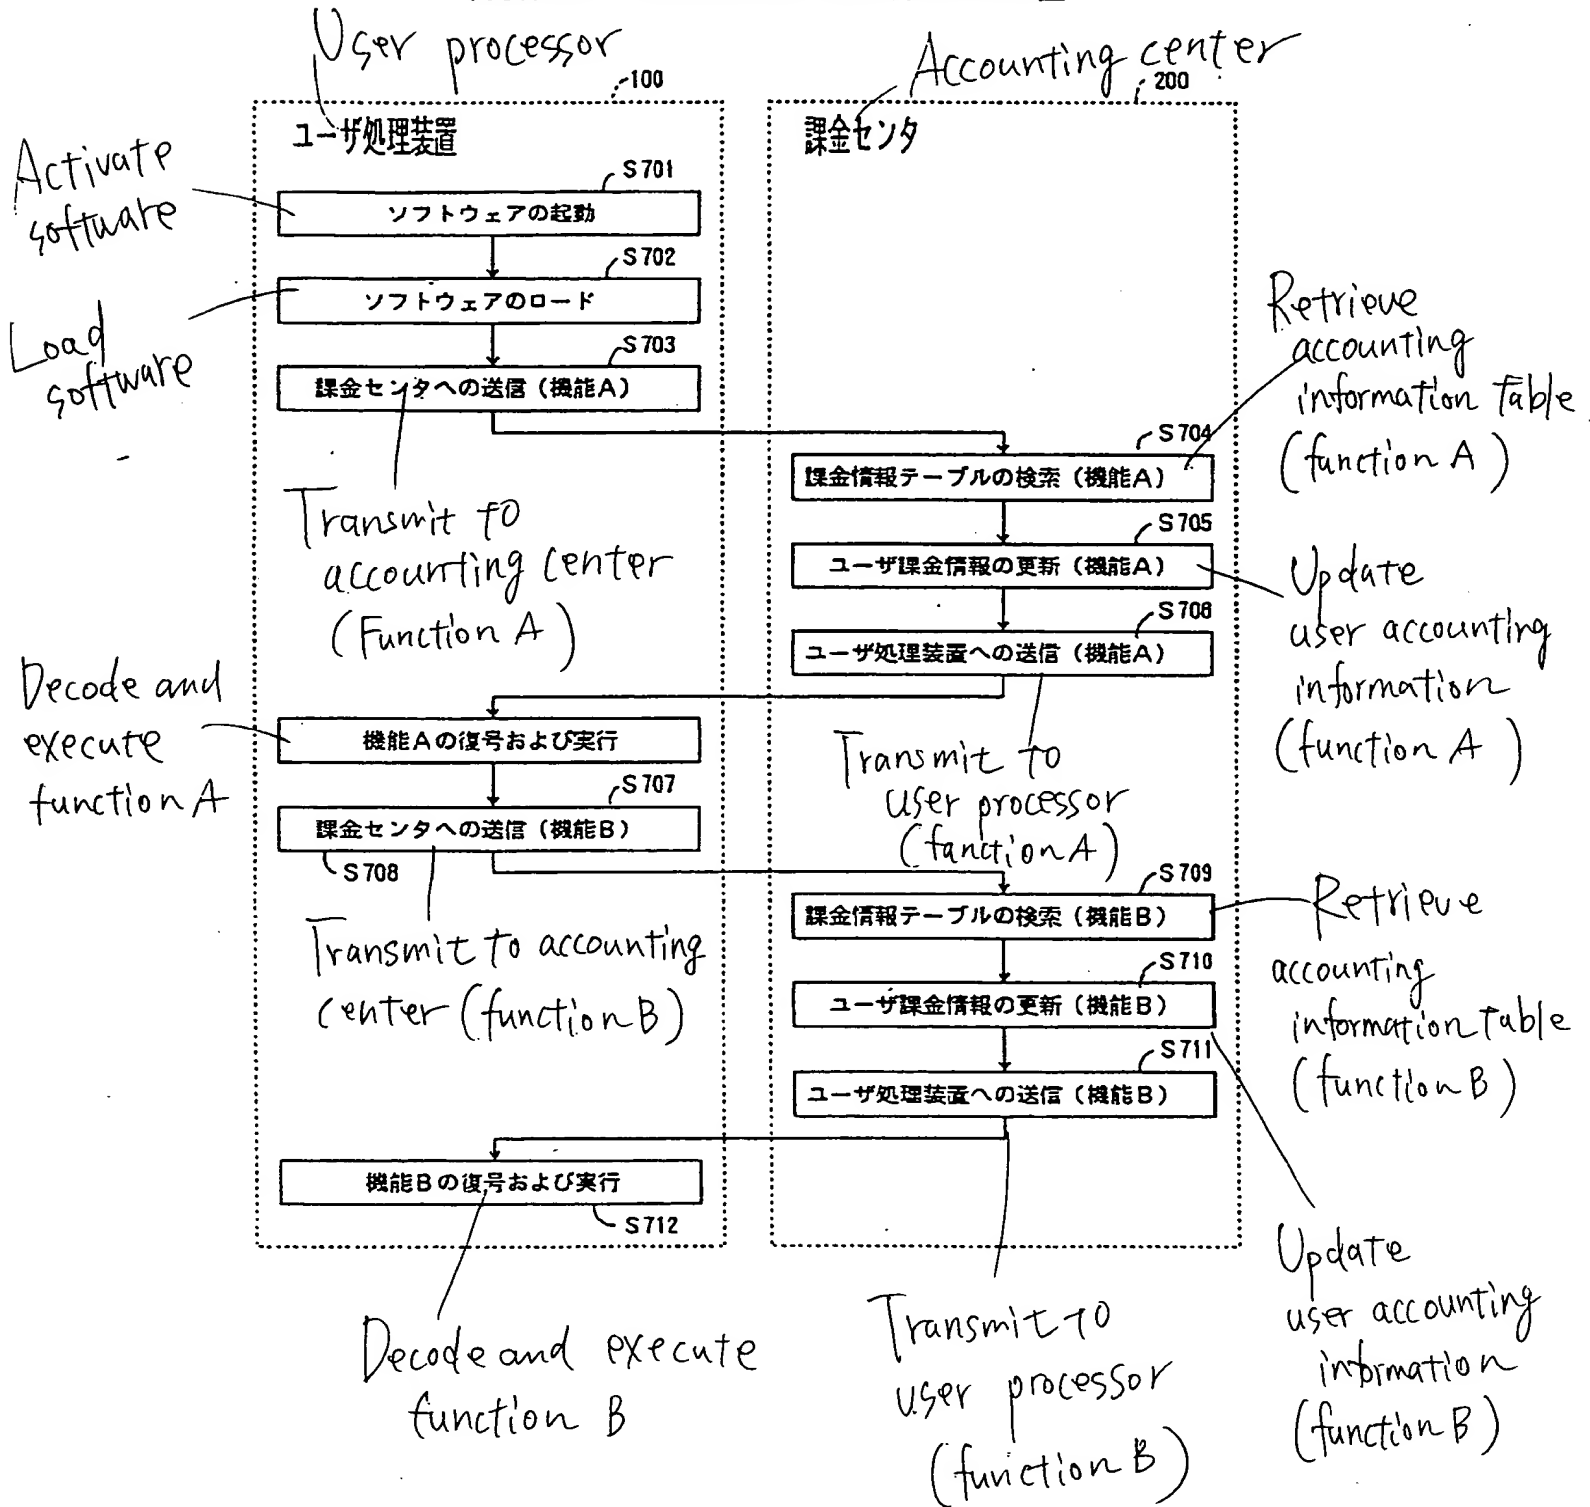 User processor
Accounting center
100
200
ユーザ処理装置
課金センタ
Activate
software
S701
ソフトウェアの起動
S702
ソフトウェアのロード
Load
software
S703
課金センタへの送信（機能A）
Retrieve
accounting
information Table
(function A)
S704
課金情報テーブルの検索（機能A）
Transmit to
accounting center
(Function A)
S705
ユーザ課金情報の更新（機能A）
Update
user accounting
information
(function A)
S706
ユーザ処理装置への送信（機能A）
Decode and
execute
function A
機能Aの復号および実行
Transmit to
user processor
(fanction A)
S707
課金センタへの送信（機能B）
S708
Transmit to accounting
center (function B)
S709
課金情報テーブルの検索（機能B）
Retrieve
accounting
information Table
(function B)
S710
ユーザ課金情報の更新（機能B）
S711
ユーザ処理装置への送信（機能B）
機能Bの復号および実行
S712
Decode and execute
function B
Transmit to
user processor
(function B)
Update
user accounting
information
(function B)